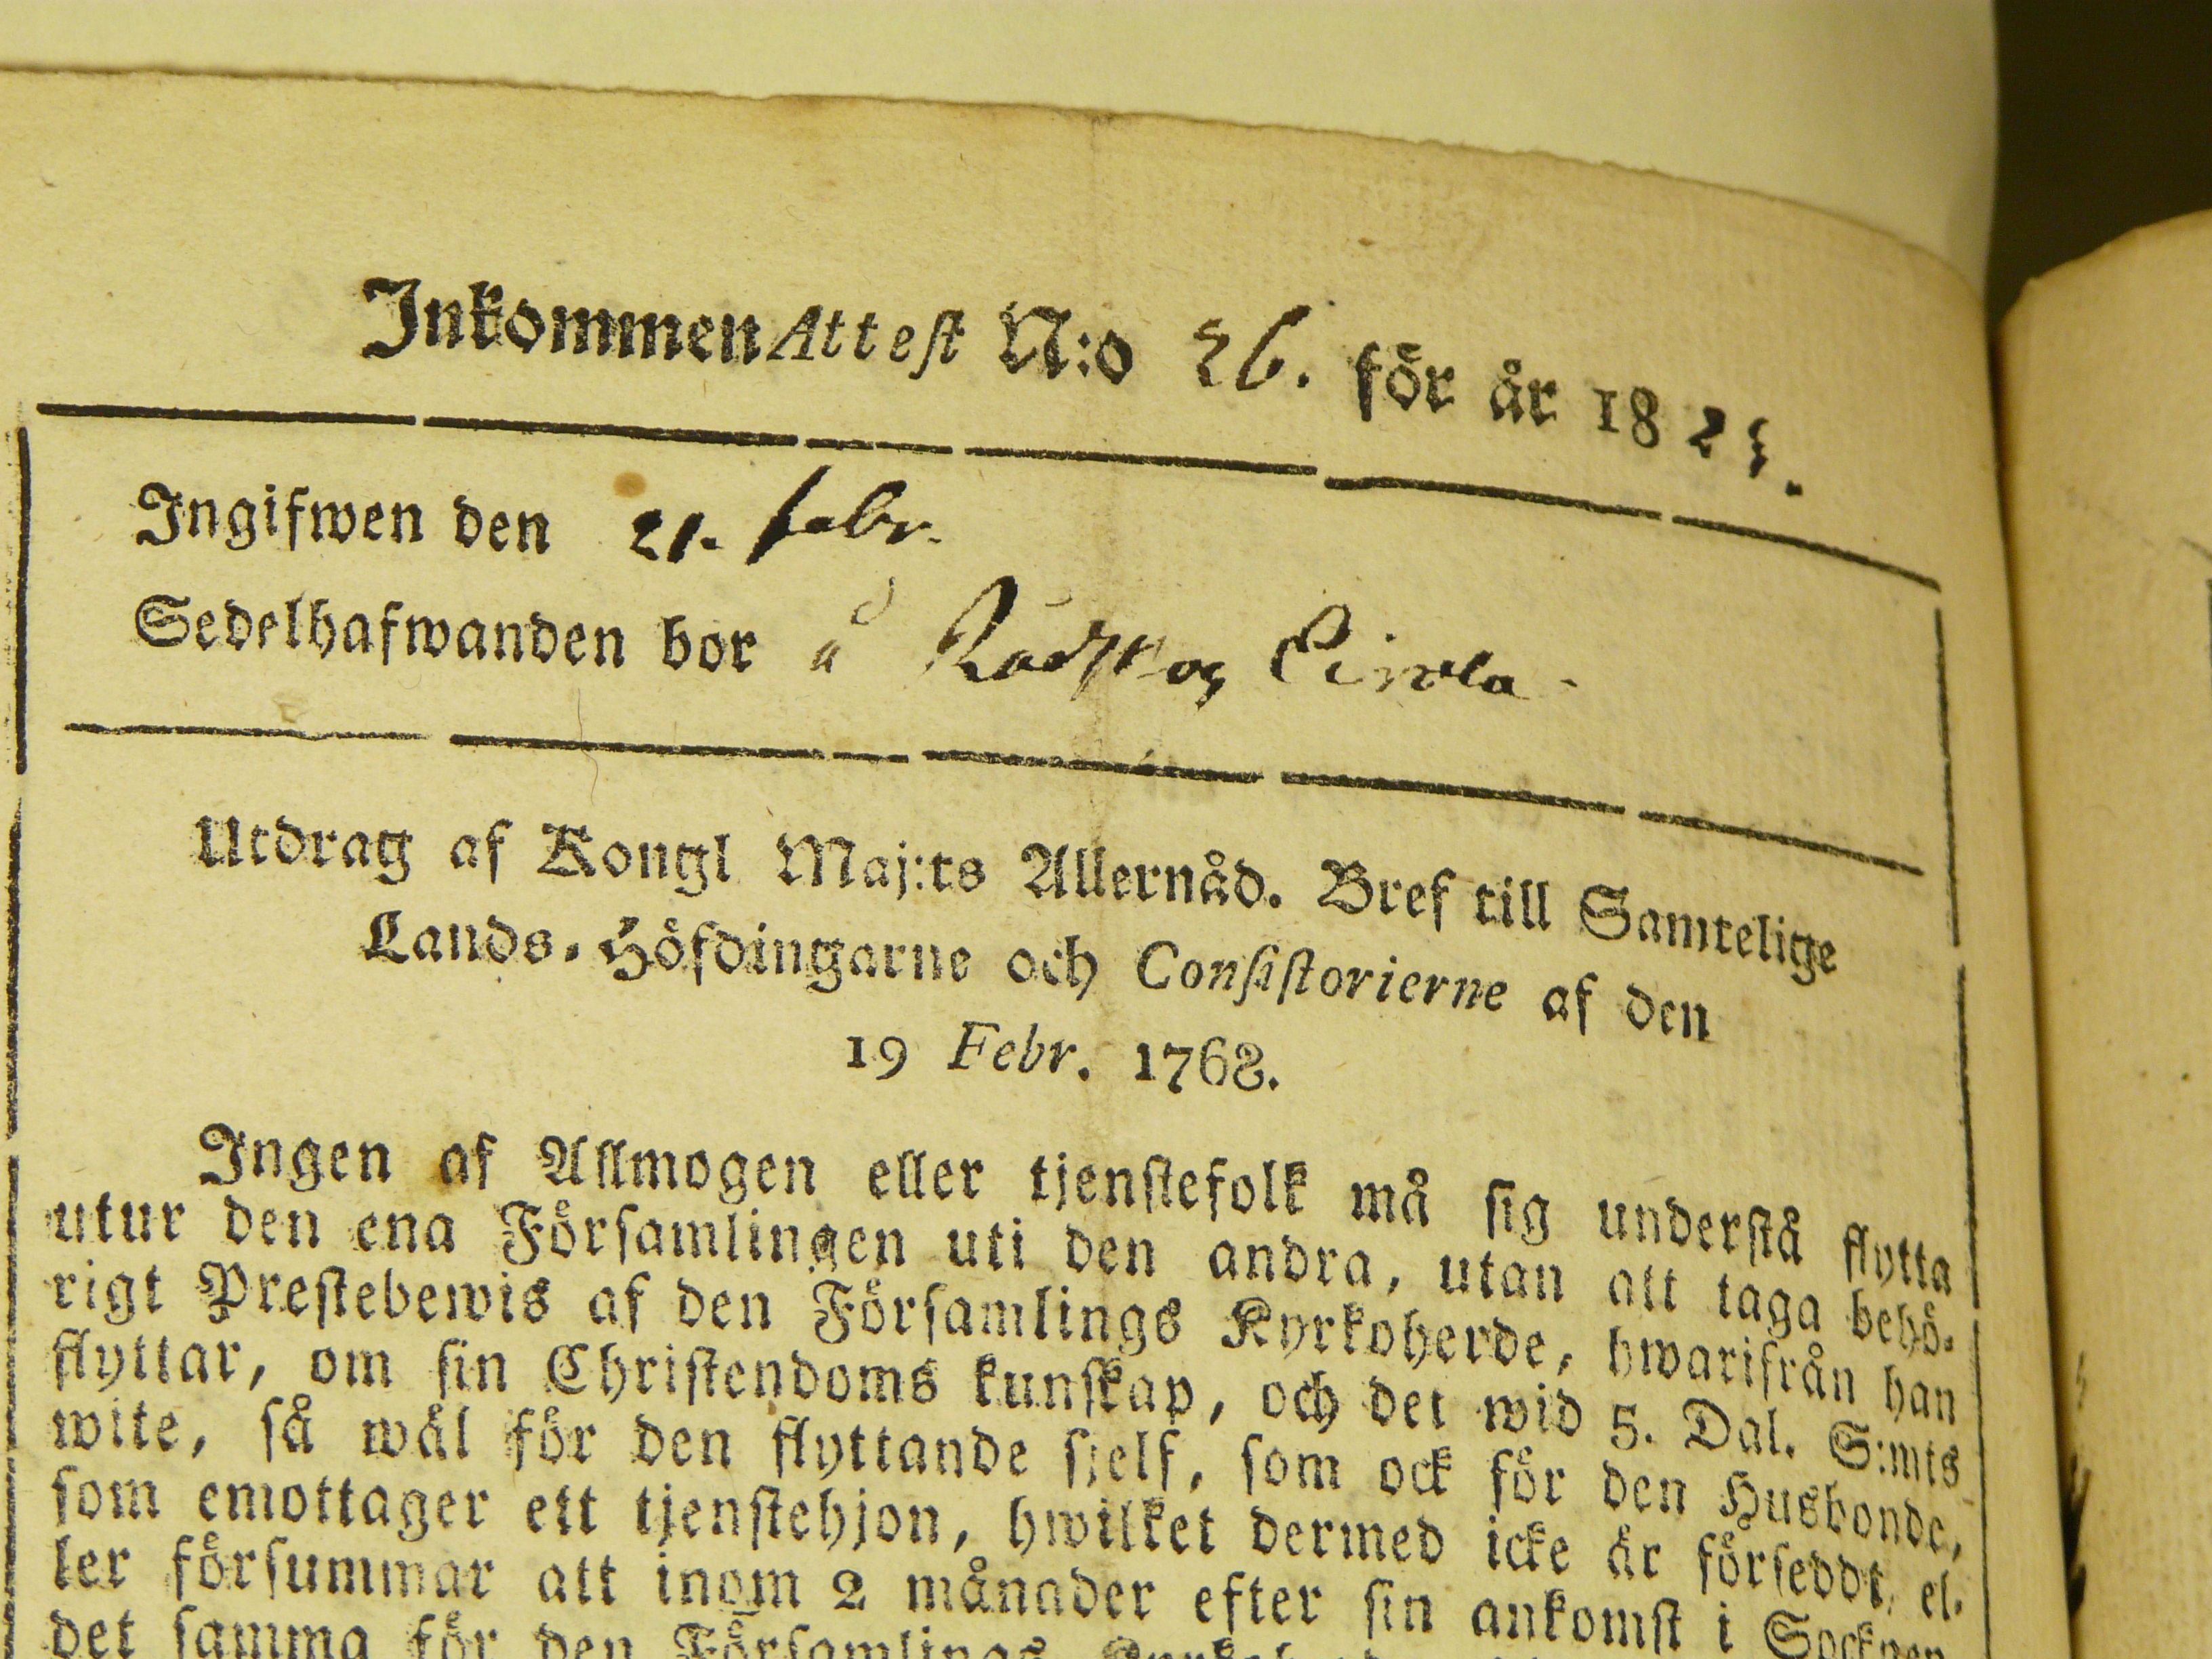 Inkommen Attest N:o 26. för år 182
Ingifwen den 21. febr.
Sedelhafwanden bor å
Utdrag af Kongl Maj:ts Allernåd. Bref till Samtelige
Lands-Höfdingarne och Consistorierne af den
19 Febr. 1768.
Ingen af Allmogen eller tjenstefolk må sig understå flytta
utur den ena Församlingen uti den andra, utan att taga behö-
rigt Prestebewis af den Församlings Kyrkoherde, hwarifrån han
flyttar, om sin Christendoms kunskap, och det wid 5. Dal. S:mts
wite, så wäl för den flyttande sjelf, som ock för den Husbonde,
som emottager ett tjenstehjon, hwilket dermed icke är förseddt, el-
ler försummar att inom 2 månader efter sin ankomst i Socknen
det samma för den Församlings